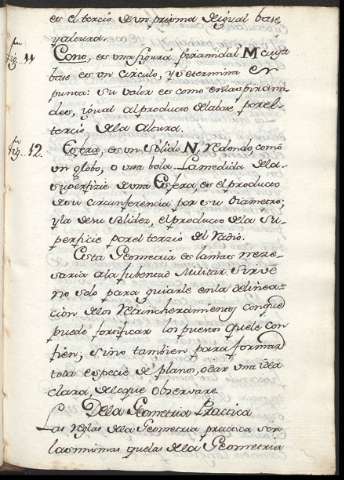 es el tercio de un prisma de igual base
y altura.
fig. 11 Cono, es una figura piramidal M cuya
base es un circulo, y determina en
punta: su valor es como en las pirami-
des, igual al producto de la base por el
tercio de la Altura.
fig. 12. Esfera, es un solido N, redondo como
un globo, o una bola. La medida de la
superficie de una Esfera, es el producto
de su circunferencia por su Diametro;
y la de su solidez, el producto de la su-
perficie por el tercio del Radio.
Esta Geometria es la mas nece-
saria a la Jubentud Militar. Sirve
no solo para guiarle en la delinea-
cion de los Atrincheramientos con que
puede fortificar los puestos que le con-
fien, sino tambien para formar
toda especie de planos, o dar una idea
clara, de lo que observare.
De la Geometria Practica
Las reglas de la Geometria practica son
las mismas que las de la Geometria